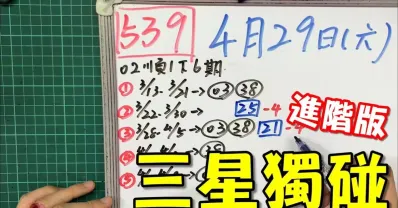 539 4月29日(六)
02順1下6期
① 3/13-3/21→ 03 38
② 3/22-3/30→ 25-4
③ 3/28-4/5→ 03 38 21-4
④
⑤
進階版
三星獨碰